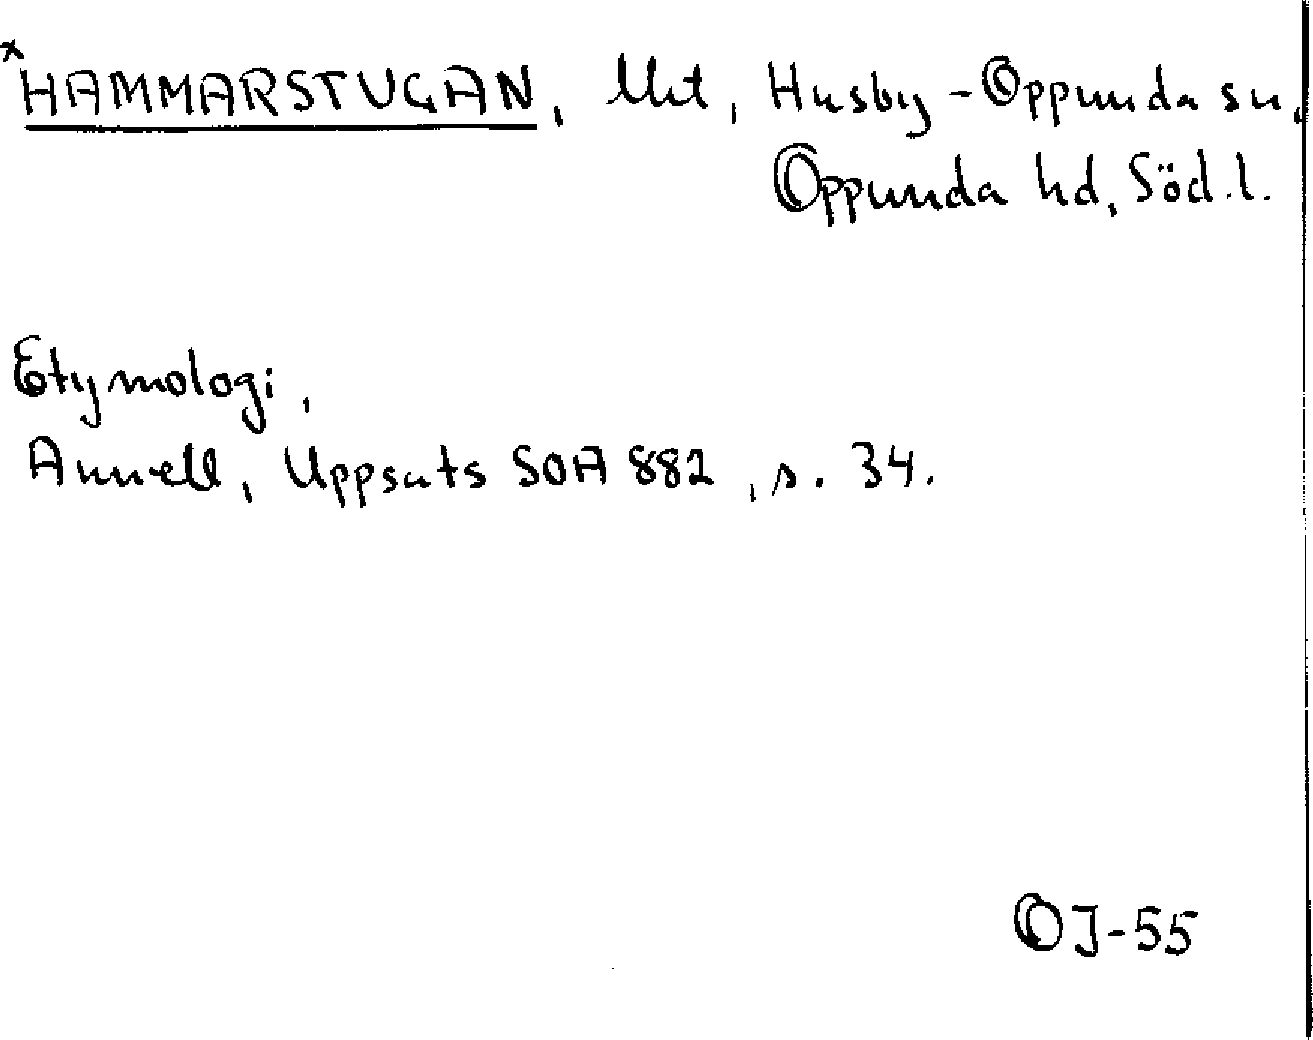 *HAMMARSTUGAN, Unt, Husby-Oppunda sn,
Oppunda hd, Söd.l.
Etymologi,
Annell, Uppsats SOA 882, s. 34.
OJ-55